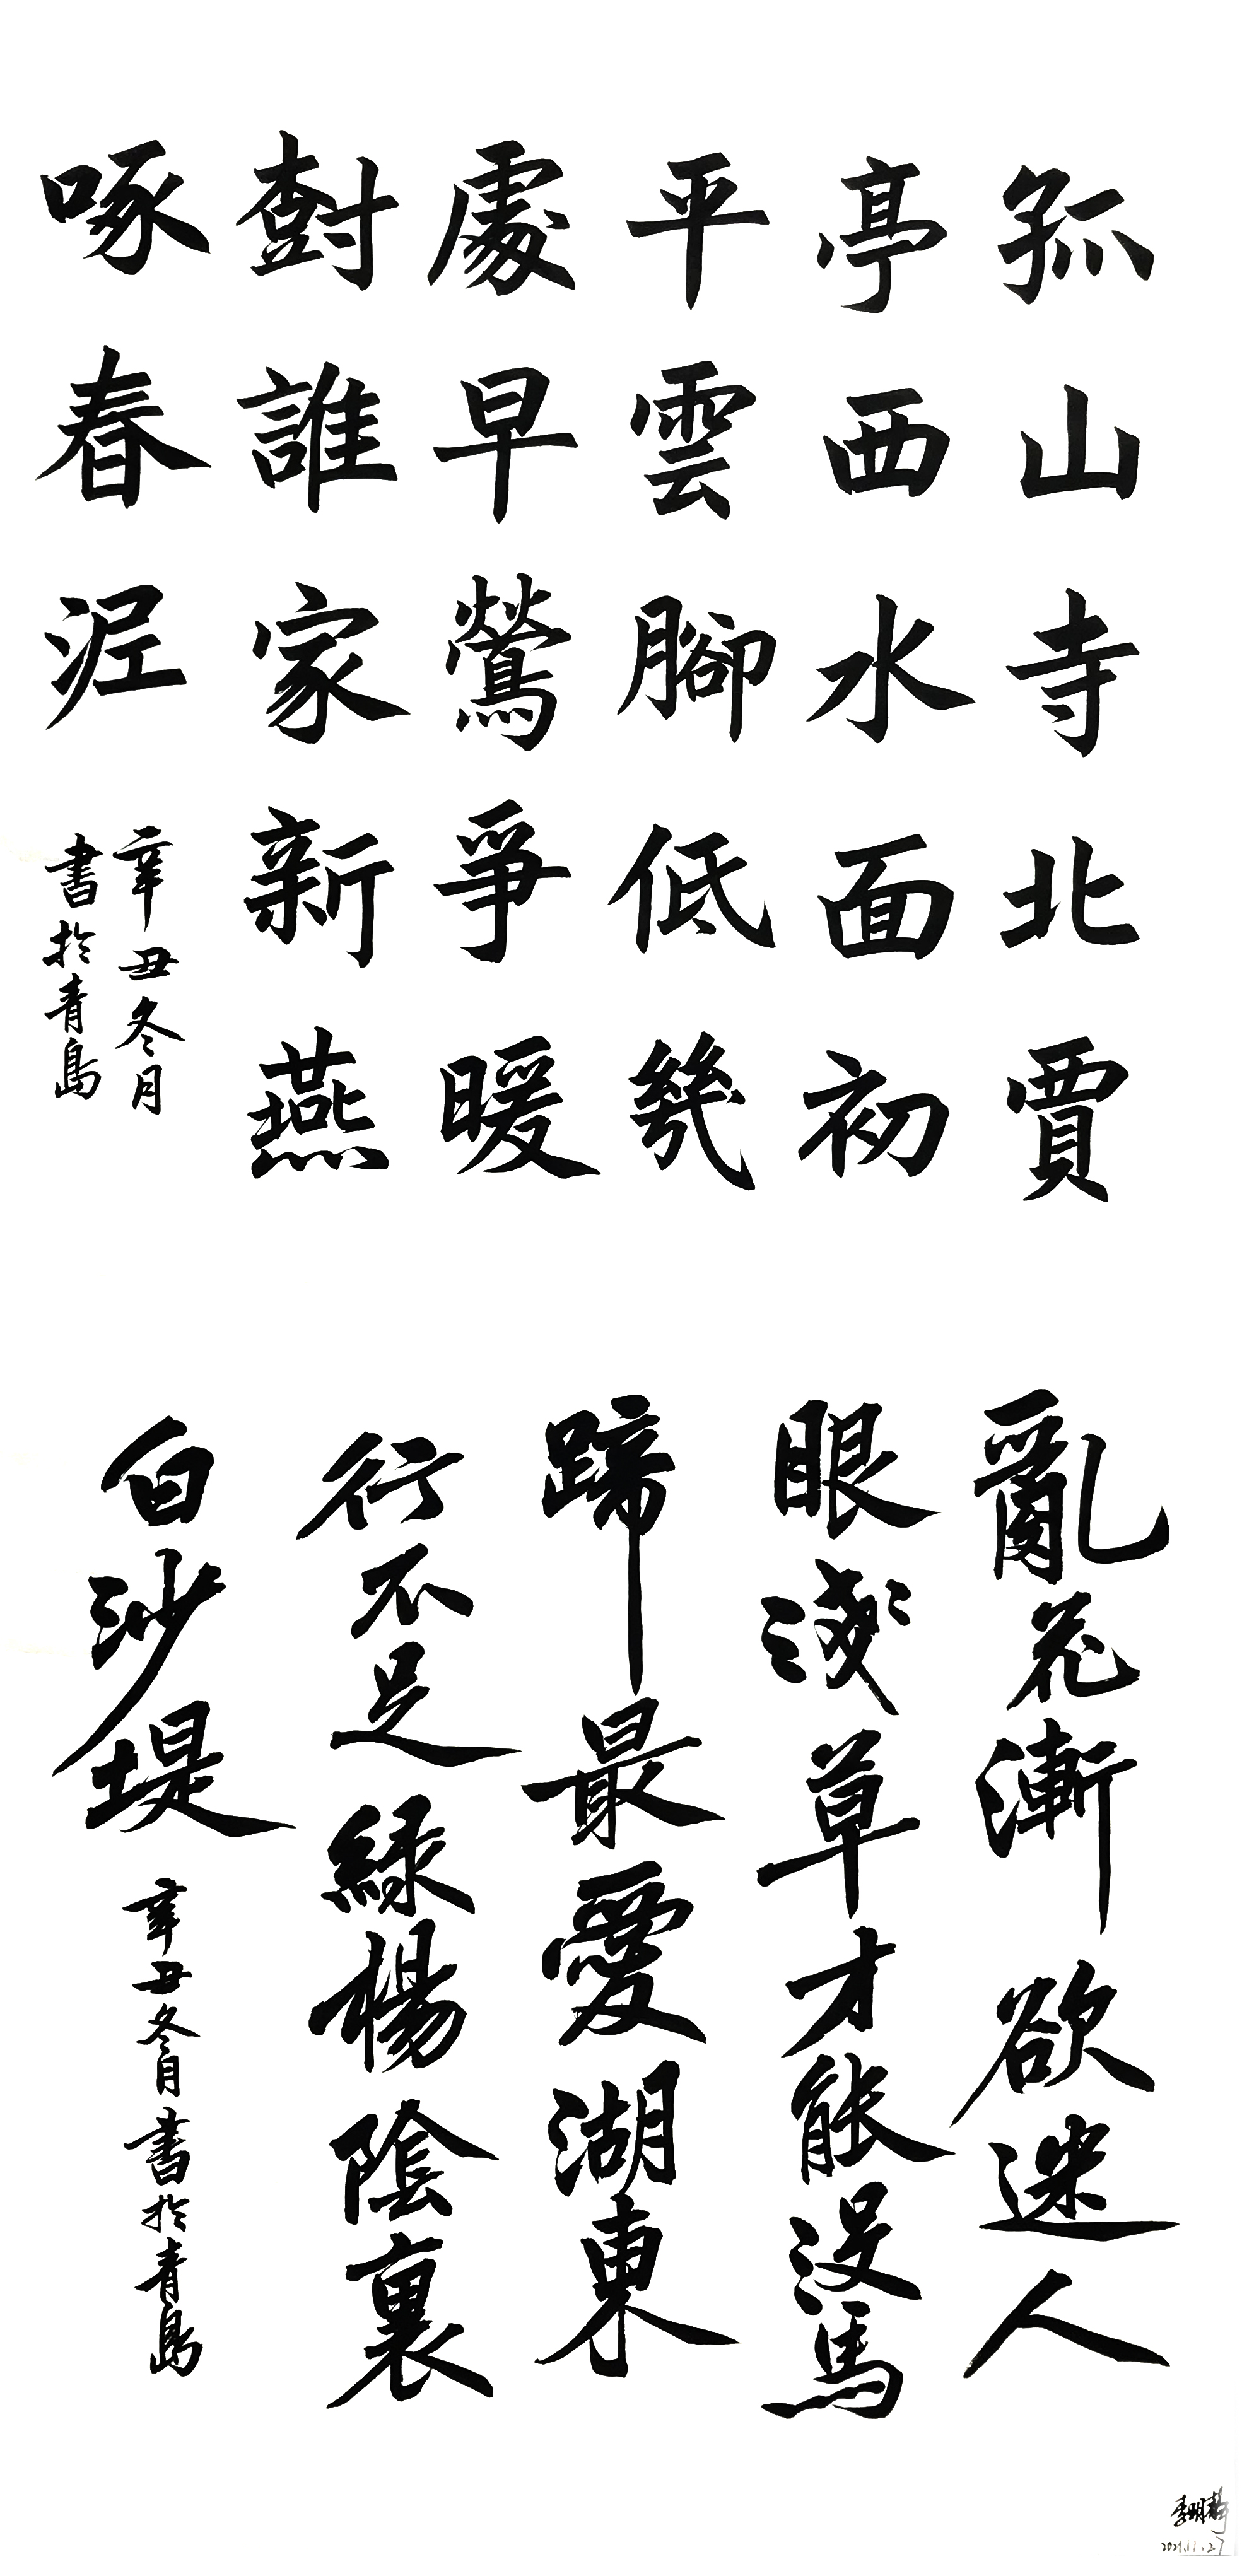 孤山寺北賈
亭西水面初
平雲腳低幾
處早鶯爭暖
樹誰家新燕
啄春泥
辛丑冬月
書於青島
亂花漸欲迷人
眼淺草才能沒馬
蹄最愛湖東
行不足綠楊陰裏
白沙堤
辛丑冬月書於青島
2021.11.27